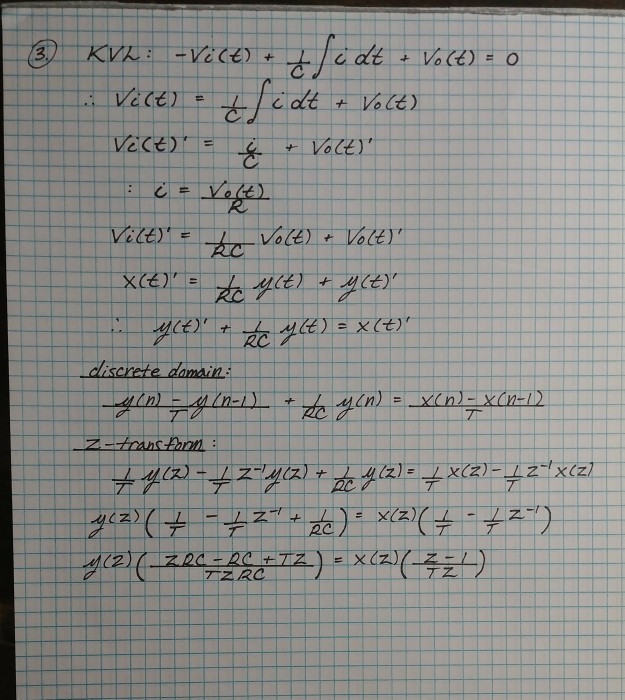 3. KVL: -Vi(t) + 1/C ∫ i dt + Vo(t) = 0
∴ Vi(t) = 1/C ∫ i dt + Vo(t)
Vi(t)' = i/C + Vo(t)'
: i = Vo(t)/R
Vi(t)' = 1/RC Vo(t) + Vo(t)'
x(t)' = 1/RC y(t) + y(t)'
∴ y(t)' + 1/RC y(t) = x(t)'
discrete domain:
(y(n) - y(n-1))/T + 1/RC y(n) = (x(n) - x(n-1))/T
z-transform:
1/T y(z) - 1/T z⁻¹ y(z) + 1/RC y(z) = 1/T x(z) - 1/T z⁻¹ x(z)
y(z) (1/T - 1/T z⁻¹ + 1/RC) = x(z) (1/T - 1/T z⁻¹)
y(z) ((ZRC - RC + TZ)/TZRC) = x(z) ((Z - 1)/TZ)